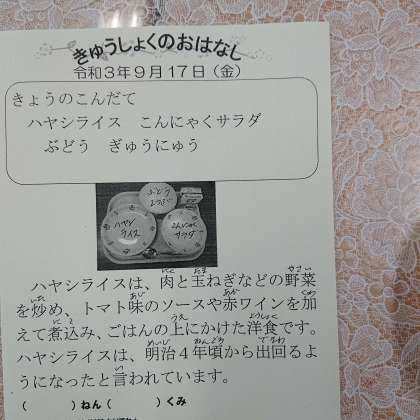 きゅうしょくのおはなし
令和3年9月17日（金）
きょうのこんだて
ハヤシライス　こんにゃくサラダ
ぶどう　ぎゅうにゅう
ぶどう
ハヤシ
ライス
こんにゃく
サラダ
ハヤシライスは、肉と玉ねぎなどの野菜
を炒め、トマト味のソースや赤ワインを加
えて煮込み、ごはんの上にかけた洋食です。
ハヤシライスは、明治４年頃から出回るよ
うになったと言われています。
（　　　）ねん（　　　）くみ